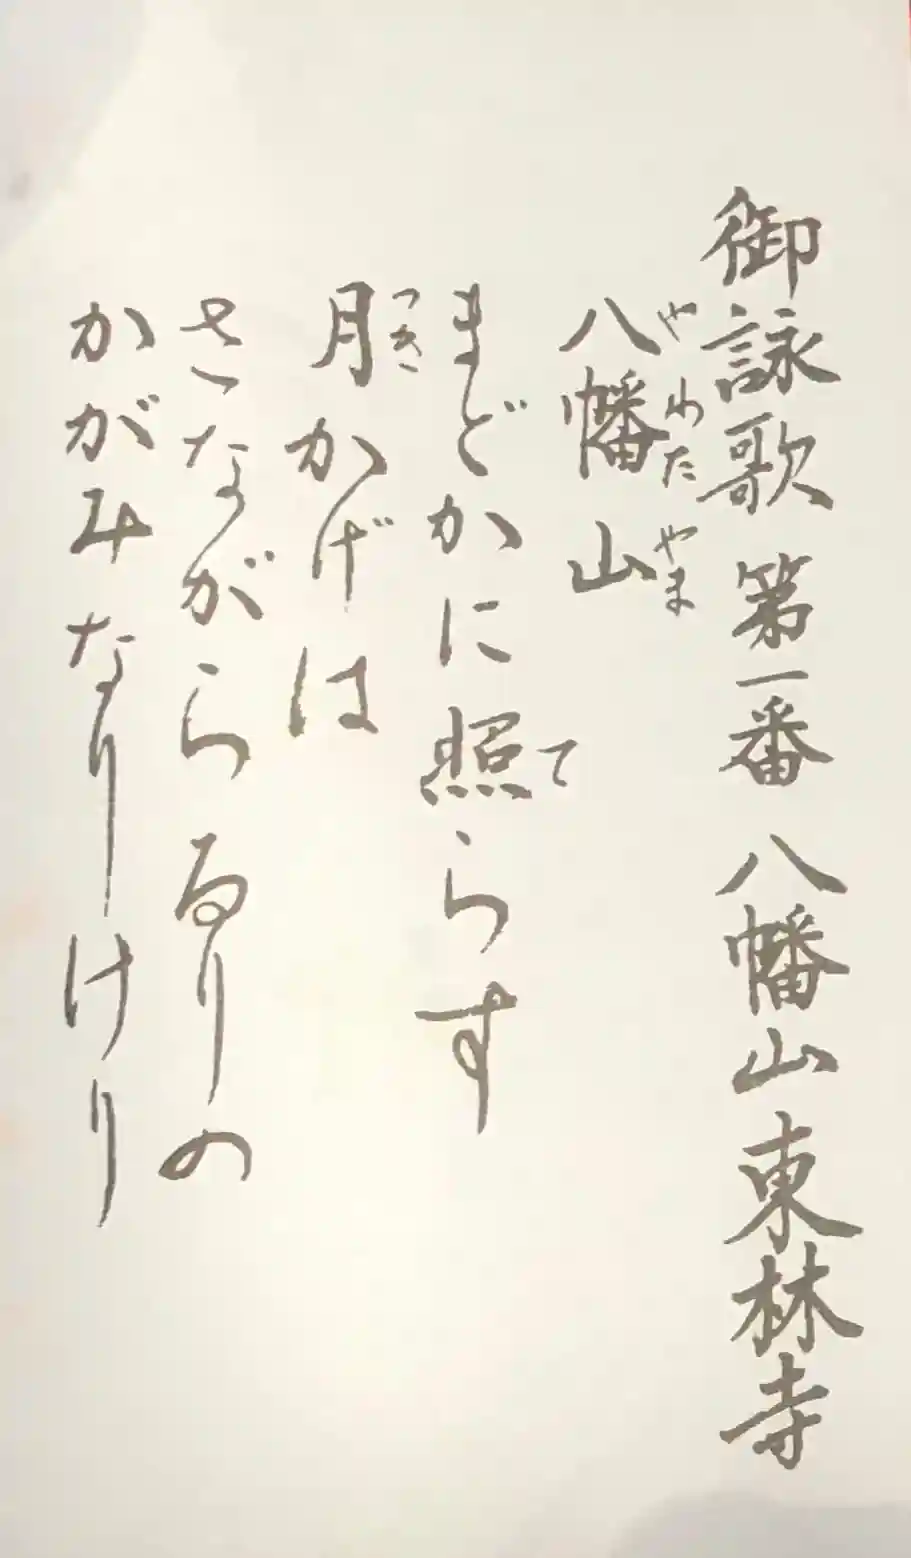 御詠歌 第一番 八幡山 東林寺
八幡山
やわたやま
まどかに照らす
て
月かげは
つき
さながらるりの
かがみなりけり